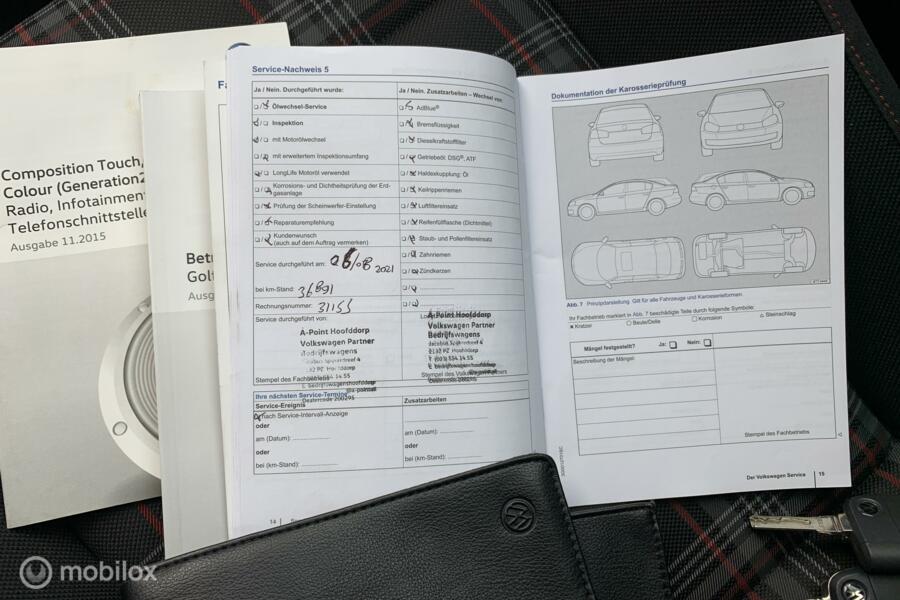 Composition Touch,
Colour (Generation2
Radio, Infotainmen
Telefonschnittstelle
Ausgabe 11.2015
Bet
Golf
Ausg
Fa
Service-Nachweis 5
Ja / Nein. Durchgeführt wurde:
Ölwechsel-Service
Inspektion
mit Motorölwechsel
mit erweitertem Inspektionsumfang
LongLife Motoröl verwendet
Korrosions- und Dichtheitsprüfung der Erd-
gasanlage
Prüfung der Scheinwerfer-Einstellung
Reparaturempfehlung
Kundenwunsch
(auch auf dem Auftrag vermerken)
Service durchgeführt am: 06/08 2021
bei km-Stand: 36891
Rechnungsnummer: 31155
Service durchgeführt von:
A-Point Hoofddorp
Volkswagen Partner
Bedrijfswagens
Stempel des Fachbetriebs
Dealercode 200295
Ja / Nein. Zusatzarbeiten – Wechsel von:
AdBlue®
Bremsflüssigkeit
Dieselkraftstofffilter
Getriebeöl: DSG®, ATF
Haldexkupplung: Öl
Keilrippenriemen
Luftfiltereinsatz
Reifenfüllflasche (Dichtmittel)
Staub- und Pollenfiltereinsatz
Zahnriemen
Zündkerzen
A-Point Hoofddorp
Volkswagen Partner
Bedrijfswagens
2132 PZ Hoofddorp
Stempel des Volkswagen Partners
Ihre nächsten Service-Termine
Service-Ereignis
nach Service-Intervall-Anzeige
oder
am (Datum):
oder
bei (km-Stand):
Zusatzarbeiten
am (Datum):
oder
bei (km-Stand):
14
Dokumentation der Karosserieprüfung
Abb. 7 Prinzipdarstellung: Gilt für alle Fahrzeuge und Karosserieformen.
Ihr Fachbetrieb markiert in Abb. 7 beschädigte Teile durch folgende Symbole:
× Kratzer ○ Beule/Delle □ Korrosion △ Steinschlag
Mängel festgestellt? Ja: Nein:
Beschreibung der Mängel:
Stempel des Fachbetriebs
Der Volkswagen Service 15
mobilox